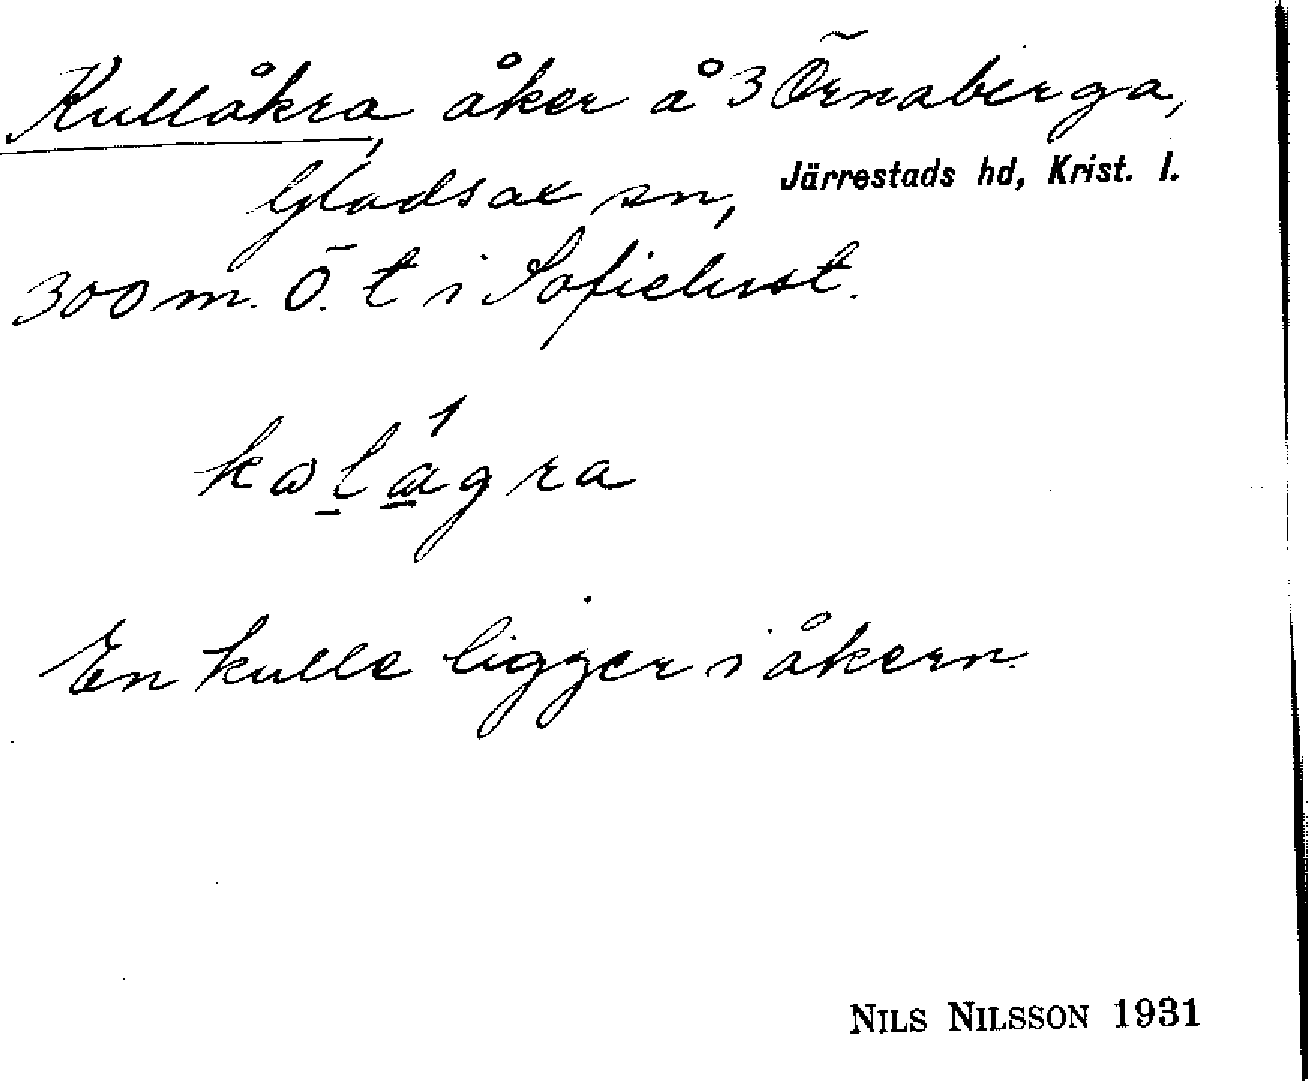 Kullåkra, åker å 3 Örnaberga,
Gladsax sn, Järrestads hd, Krist. l.
300 m. Ö. t i Sofielust.
En kulle ligger i åkern.
NILS NILSSON 1931